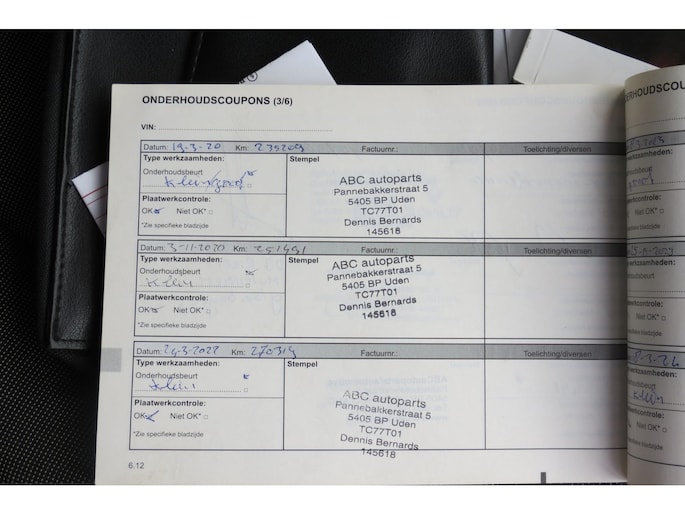 ONDERHOUDSCOUPONS (3/6)
VIN:
Datum: 19-3-20 Km: 235209 Factuurnr.: Toelichting/diversen
Type werkzaamheden: Stempel
Onderhoudsbeurt
ABC autoparts
Pannebakkerstraat 5
5405 BP Uden
TC77T01
Dennis Bernards
145618
Plaatwerkcontrole:
OK Niet OK*
*Zie specifieke bladzijde
Datum: 3-11-2020 Km: 251491 Factuurnr.: Toelichting/diversen
Type werkzaamheden: Stempel
Onderhoudsbeurt
Klein
ABC autoparts
Pannebakkerstraat 5
5405 BP Uden
TC77T01
Dennis Bernards
145618
Plaatwerkcontrole:
OK Niet OK*
*Zie specifieke bladzijde
Datum: 24-3-2022 Km: 270314 Factuurnr.: Toelichting/diversen
Type werkzaamheden: Stempel
Onderhoudsbeurt
Klein
ABC autoparts
Pannebakkerstraat 5
5405 BP Uden
TC77T01
Dennis Bernards
145618
Plaatwerkcontrole:
OK Niet OK*
*Zie specifieke bladzijde
6.12